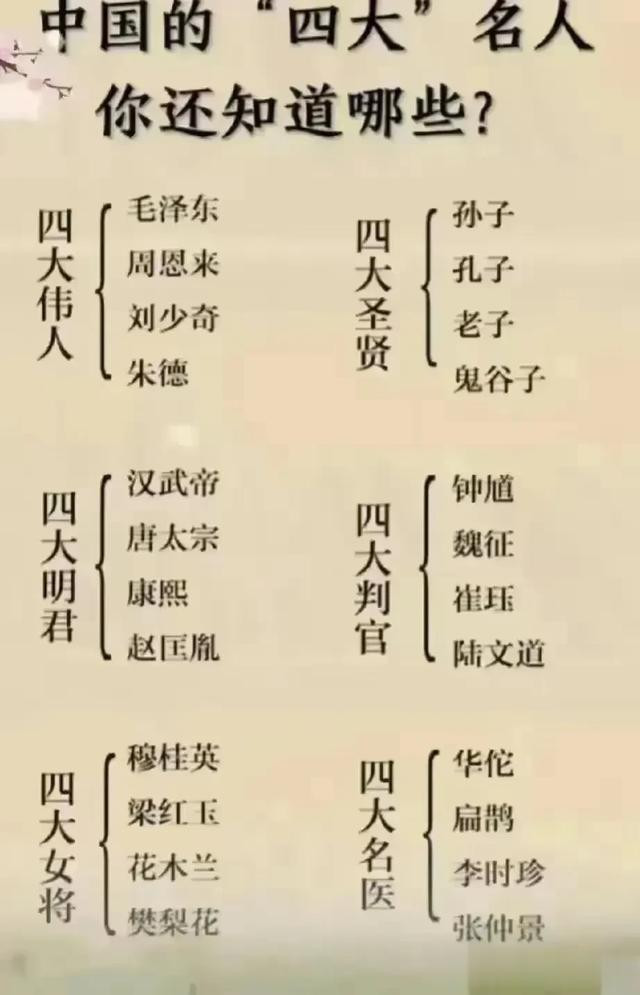 中国的“四大”名人
你还知道哪些?
四大伟人
毛泽东
周恩来
刘少奇
朱德
四大圣贤
孙子
孔子
老子
鬼谷子
四大明君
汉武帝
唐太宗
康熙
赵匡胤
四大判官
钟馗
魏征
崔珏
陆文道
四大女将
穆桂英
梁红玉
花木兰
樊梨花
四大名医
华佗
扁鹊
李时珍
张仲景